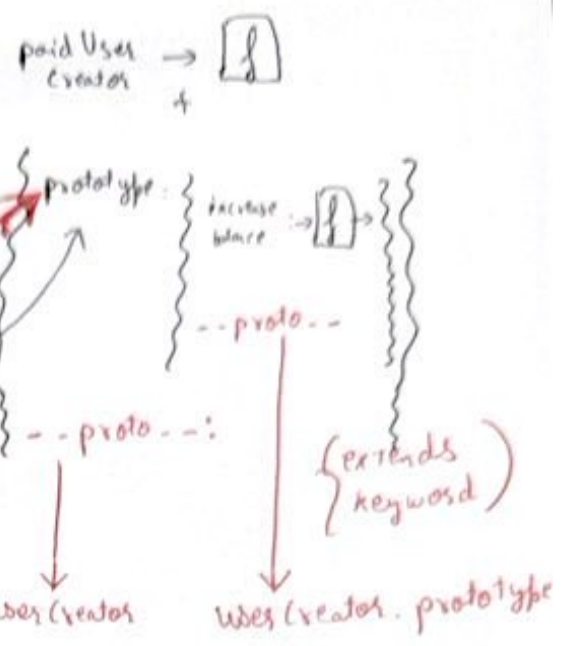 paid User
Creator →
+
prototype :
increase
balance :→
--proto--
--proto--:
{extends
keyword)
userCreator
userCreator.prototype